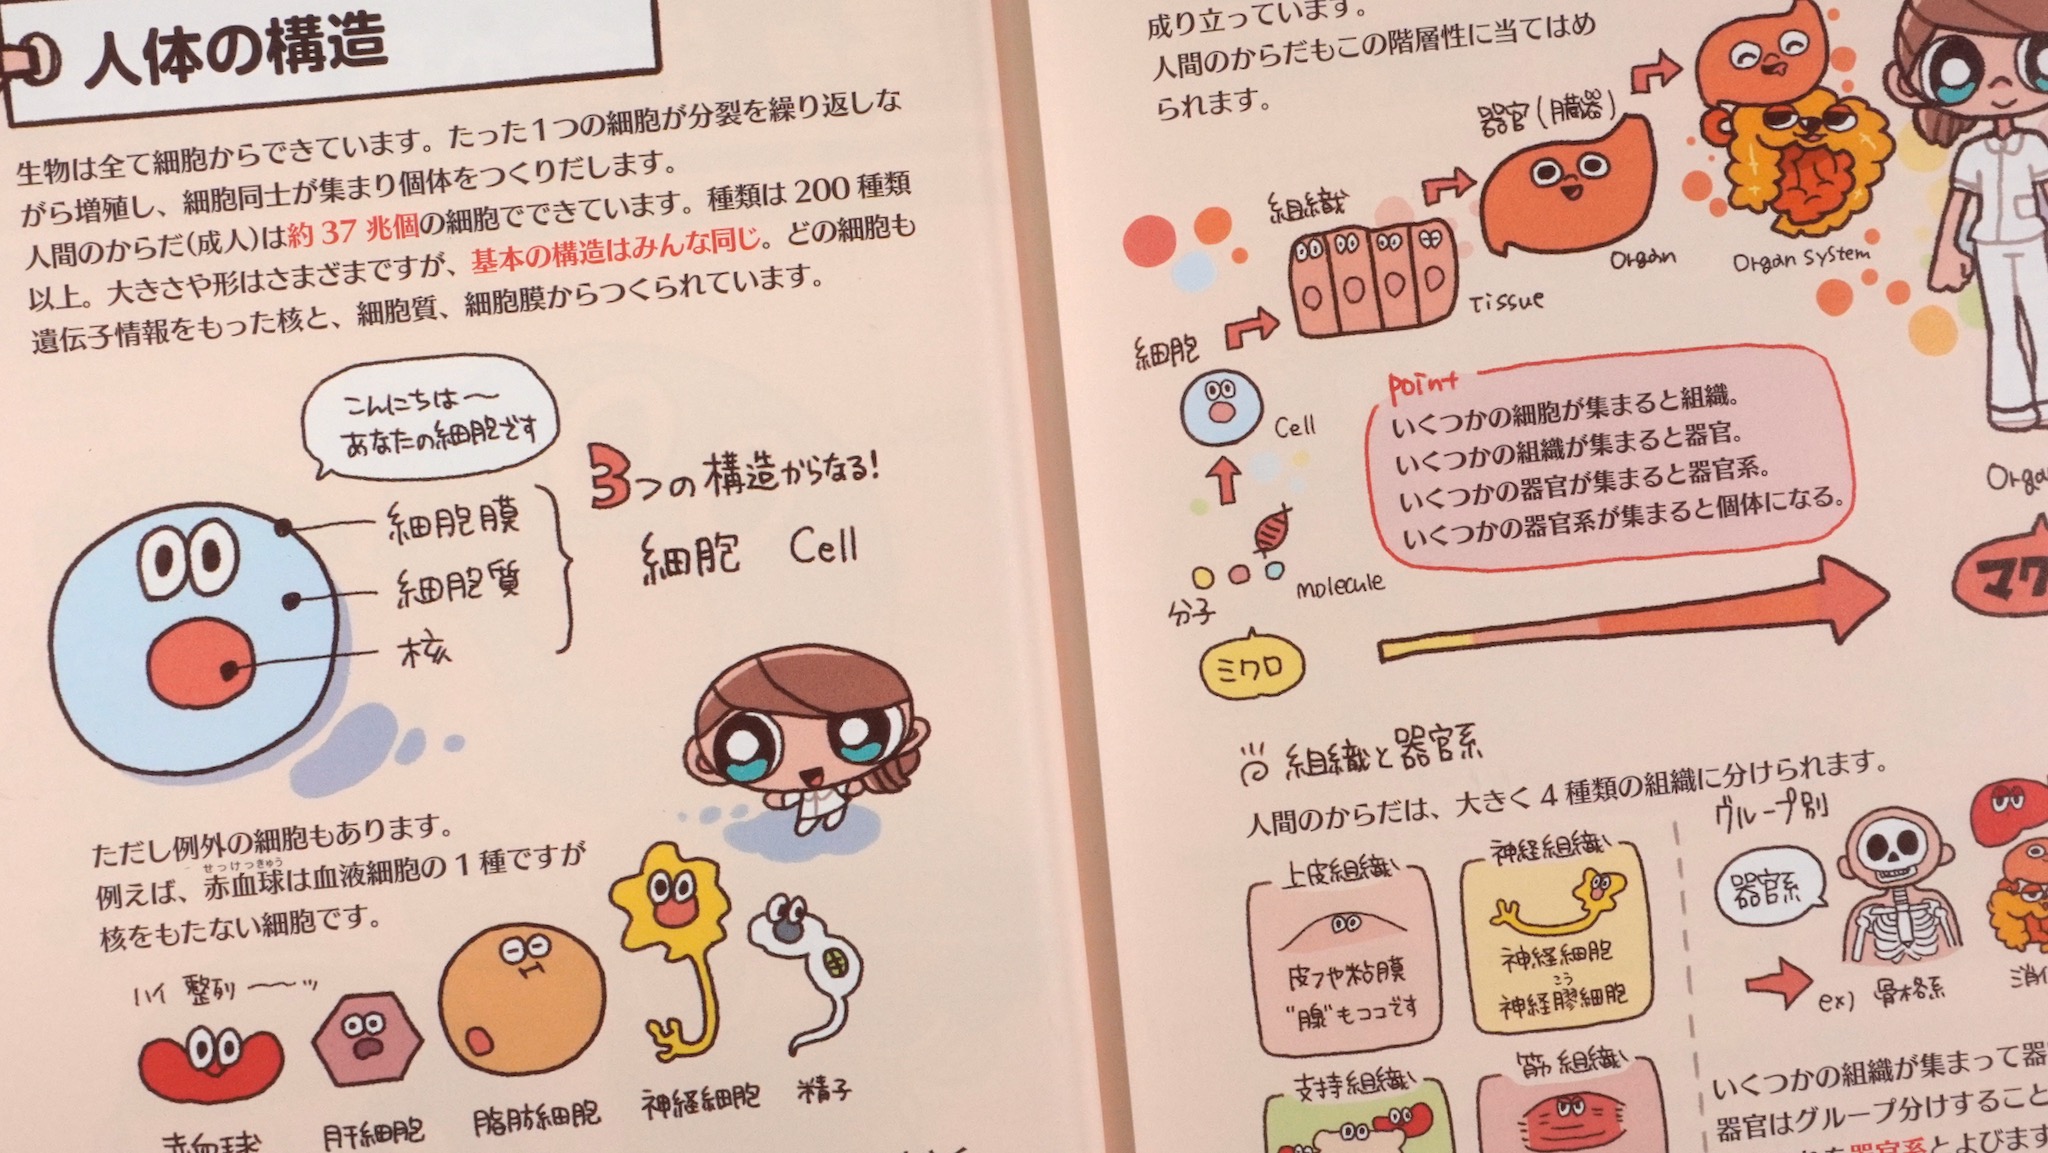 人体の構造
生物は全て細胞からできています。たった1つの細胞が分裂を繰り返しな
がら増殖し、細胞同士が集まり個体をつくりだします。
人間のからだ(成人)は約37兆個の細胞でできています。種類は200種類
以上。大きさや形はさまざまですが、基本の構造はみんな同じ。どの細胞も
遺伝子情報をもった核と、細胞質、細胞膜からつくられています。
こんにちは〜
あなたの細胞です
細胞膜
細胞質
核
3つの構造からなる!
細胞 Cell
ただし例外の細胞もあります。
せっけっきゅう
例えば、赤血球は血液細胞の1種ですが
核をもたない細胞です。
ハイ 整列〜〜ッ
赤血球
肝細胞
脂肪細胞
神経細胞
精子
成り立っています。
人間のからだもこの階層性に当てはめ
られます。
器官(臓器)
組織
Organ
Organ System
Tissue
細胞
Cell
point
いくつかの細胞が集まると組織。
いくつかの組織が集まると器官。
いくつかの器官が集まると器官系。
いくつかの器官系が集まると個体になる。
分子
molecule
ミクロ
マク
組織と器官系
人間のからだは、大きく4種類の組織に分けられます。
上皮組織
皮フや粘膜
"腺"もココです
神経組織
神経細胞
こう
神経膠細胞
支持組織
筋組織
グループ別
器官系
ex) 骨格系
消
いくつかの組織が集まって器
器官はグループ分けすること
器官系とよびます